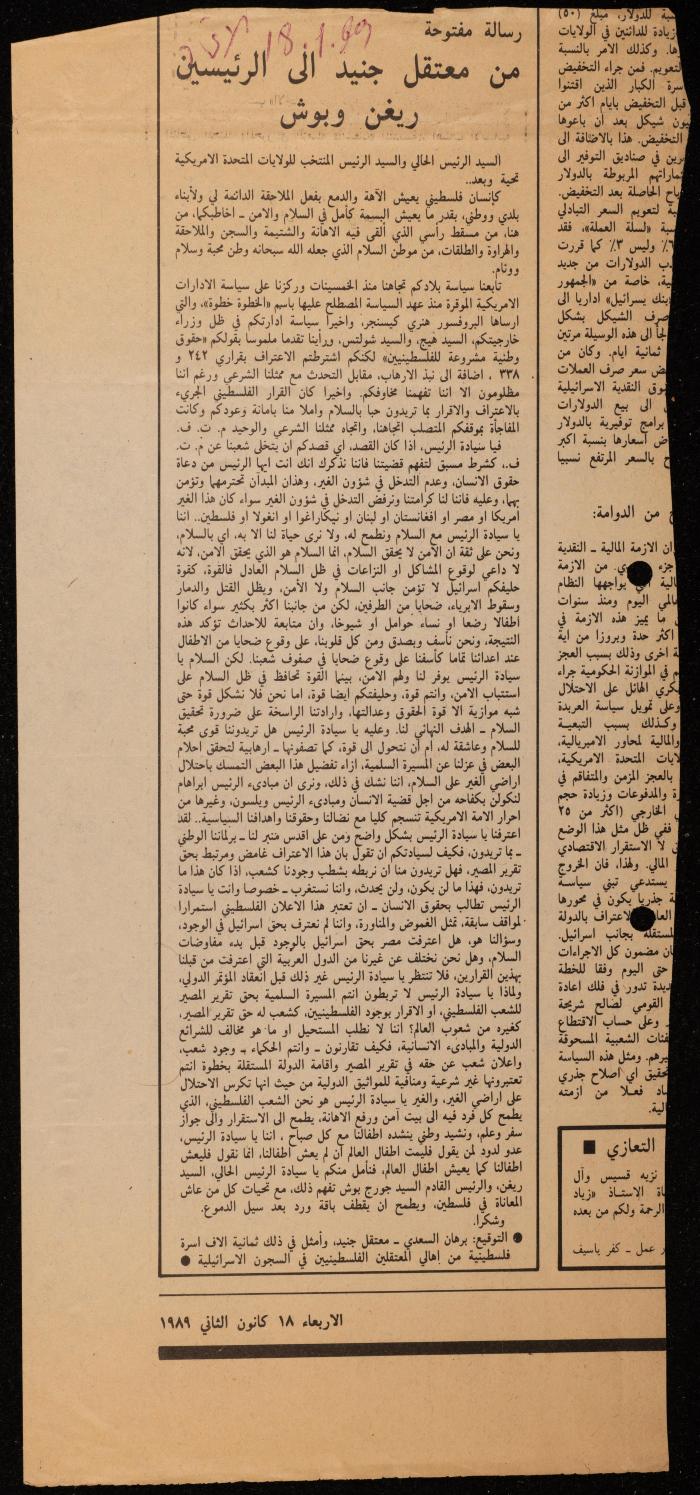 18.1.89
رسالة مفتوحة
من معتقل جنيد الى الرئيسين
ريغن وبوش
السيد الرئيس الحالي والسيد الرئيس المنتخب للولايات المتحدة الامريكية
تحية وبعد..
كإنسان فلسطيني يعيش الآهة والدمع بفعل الملاحقة الدائمة لي ولأبناء
بلدي ووطني، بقدر ما يعيش البسمة كأمل في السلام والامن ـ اخاطبكما، من
هنا، من مسقط رأسي الذي ألقى فيه الاهانة والشتيمة والسجن والملاحقة
والهراوة والطلقات، من موطن السلام الذي جعله الله سبحانه وطن محبة وسلام
ووئام.
تابعنا سياسة بلادكم تجاهنا منذ الخمسينات وركزنا على سياسة الادارات
الامريكية الموقرة منذ عهد السياسة المصطلح عليها باسم «الخطوة خطوة»، والتي
ارساها البروفسور هنري كيسنجر، واخيرا سياسة ادارتكم في ظل وزراء
خارجيتكم، السيد هيج، والسيد شولتس، ورأينا تقدما ملموسا بقولكم «حقوق
وطنية مشروعة للفلسطينيين» لكنكم اشترطتم الاعتراف بقراري ٢٤٢ و
٣٣٨ ، اضافة الى نبذ الارهاب، مقابل التحدث مع ممثلنا الشرعي ورغم اننا
مظلومون الا اننا تفهمنا مخاوفكم. واخيرا كان القرار الفلسطيني الجريء
بالاعتراف والاقرار بما تريدون حبا بالسلام واملا منا بامانة وعودكم وكانت
المفاجأة بموقفكم المتصلب اتجاهنا، واتجاه ممثلنا الشرعي والوحيد م. ت. ف.
فيا سيادة الرئيس، اذا كان القصد، اي قصدكم ان يتخلى شعبنا عن م. ت.
ف.، كشرط مسبق لتفهم قضيتنا فاننا نذكرك انك انت ايها الرئيس من دعاة
حقوق الانسان، وعدم التدخل في شؤون الغير، وهذان المبدآن تحترمهما وتؤمن
بهما، وعليه فاننا لنا كرامتنا ونرفض التدخل في شؤون الغير سواء كان هذا الغير
امريكا او مصر او افغانستان او لبنان او نيكاراغوا او انغولا او فلسطين.. اننا
يا سيادة الرئيس مع السلام ونطمح له، ولا نرى حياة لنا الا به، اي بالسلام،
ونحن على ثقة ان الأمن لا يحقق السلام، انما السلام هو الذي يحقق الامن، لانه
لا داعي لوقوع المشاكل او النزاعات في ظل السلام العادل فالقوة، كقوة
حليفكم اسرائيل لا تؤمن جانب السلام ولا الأمن، ويظل القتل والدمار
وسقوط الابرياء، ضحايا من الطرفين، لكن من جانبنا اكثر بكثير سواء كانوا
اطفالا رضعا او نساء حوامل أو شيوخا، وان متابعة للاحداث تؤكد هذه
النتيجة، ونحن نأسف وبصدق ومن كل قلوبنا، على وقوع ضحايا من الاطفال
عند اعدائنا تماما كأسفنا على وقوع ضحايا في صفوف شعبنا. لكن السلام يا
سيادة الرئيس يوفر لنا ولهم الامن، بينما القوة تحافظ في ظل السلام على
استتباب الامن، وانتم قوة، وحليفتكم ايضا قوة، اما نحن فلا نشكل قوة حتى
شبه موازية الا قوة الحقوق وعدالتها، وارادتنا الراسخة على ضرورة تحقيق
السلام ـ الهدف النهائي لنا. وعليه يا سيادة الرئيس هل تريدوننا قوى محبة
للسلام وعاشقة له، ام أن نتحول الى قوة، كما تصفونها ـ ارهابية لتحقق احلام
البعض في عزلنا عن المسيرة السلمية، ازاء تفضيل هذا البعض التمسك باحتلال
اراضي الغير على السلام، اننا نشك في ذلك، ونرى ان مبادىء الرئيس ابراهام
لنكولن بكفاحه من اجل قضية الانسان ومبادىء الرئيس ويلسون، وغيرها من
احرار الامة الامريكية تنسجم كليا مع نضالنا وحقوقنا واهدافنا السياسية.. لقد
اعترفنا يا سيادة الرئيس بشكل واضح ومن على اقدس منبر لنا ـ برلماننا الوطني
ـ بما تريدون، فكيف لسيادتكم ان تقول بان هذا الاعتراف غامض ومرتبط بحق
تقرير المصير، فهل تريدون منا ان نربطه بشطب وجودنا كشعب، اذا كان هذا ما
تريدون، فهذا ما لن يكون، ولن يحدث، واننا نستغرب ـ خصوصا وانت يا سيادة
الرئيس تطالب بحقوق الانسان ـ ان تعتبر هذا الاعلان الفلسطيني استمرارا
لمواقف سابقة، تمثل الغموض والمناورة، واننا لم نعترف بحق اسرائيل في الوجود،
وسؤالنا هو، هل اعترفت مصر بحق اسرائيل بالوجود قبل بدء مفاوضات
السلام، وهل نحن نختلف عن غيرنا من الدول العربية التي اعترفت من قبلنا
بهذين القرارين، فلا تنتظر يا سيادة الرئيس غير ذلك قبل انعقاد المؤتمر الدولي،
ولماذا يا سيادة الرئيس لا تربطون انتم المسيرة السلمية بحق تقرير المصير
للشعب الفلسطيني، او الاقرار بوجود الفلسطينيين، كشعب له حق تقرير المصير،
كغيره من شعوب العالم؟ اننا لا نطلب المستحيل او ما هو مخالف للشرائع
الدولية والمبادىء الانسانية، فكيف تقارنون ـ وانتم الحكماء ـ وجود شعب،
واعلان شعب عن حقه في تقرير المصير واقامة الدولة المستقلة بخطوة انتم
تعتبرونها غير شرعية ومنافية للمواثيق الدولية من حيث انها تكرس الاحتلال
على اراضي الغير، والغير يا سيادة الرئيس هو نحن الشعب الفلسطيني، الذي
يطمح كل فرد فيه الى بيت آمن ورفع الاهانة، يطمح الى الاستقرار والى جواز
سفر وعلم، ونشيد وطني ينشده اطفالنا مع كل صباح ، اننا يا سيادة الرئيس،
عدو لدود لمن يقول فليمت اطفال العالم ان لم يعش اطفالنا، انما نقول فليعش
اطفالنا كما يعيش اطفال العالم، فنأمل منكم يا سيادة الرئيس الحالي، السيد
ريغن، والرئيس القادم السيد جورج بوش تفهم ذلك، مع تحيات كل من عاش
المعاناة في فلسطين، ويطمح ان يقطف باقة ورد بعد سيل الدموع.
وشكرا.
● التوقيع: برهان السعدي ـ معتقل جنيد، وأمثل في ذلك ثمانية الاف اسرة
فلسطينية من اهالي المعتقلين الفلسطينيين في السجون الاسرائيلية ●
الاربعاء ١٨ كانون الثاني ١٩٨٩
سبة للدولار، مبلغ (٥٠)
زيادة للدائنين في الولايات
ها. وكذلك الامر بالنسبة
لتعويم. فمن جراء التخفيض
سرة الكبار الذين اقتنوا
قبل التخفيض بايام اكثر من
يون شيكل بعد ان باعوها
التخفيض. هذا بالاضافة الى
رين في صناديق التوفير الى
ثماراتهم المربوطة بالدولار
باح الحاصلة بعد التخفيض.
ة لتعويم السعر التبادلي
سبة «لسلة العملة»، فقد
٦٪ وليس ٣٪ كما قررت
ب الدولارات من جديد
ية، خاصة من «الجمهور
بنك يسرائيل» اداريا الى
صرف الشيكل بشكل
لجأ الى هذه الوسيلة مرتين
ثمانية ايام. وكان من
ض سعر صرف العملات
وق النقدية الاسرائيلية
الى بيع الدولارات
برامج توفيرية بالدولار
ض اسعارها بنسبة اكبر
ح بالسعر المرتفع نسبيا
ج من الدوامة:
ان الازمة المالية ـ النقدية
جزء من الازمة
الية يواجهها النظام
المي اليوم ومنذ سنوات
ما يميز هذه الازمة في
اكثر حدة وبروزا من اية
ة اخرى وذلك بسبب العجز
م في الموازنة الحكومية جراء
كري الهائل على الاحتلال
وعلى تمويل سياسة العربدة
وكذلك بسبب التبعية
والمالية لمحاور الامبريالية،
لايات المتحدة الامريكية،
بالعجز المزمن والمتفاقم في
ة والمدفوعات وزيادة حجم
الخارجي (اكثر من ٢٥
ففي ظل مثل هذا الوضع
لا الاستقرار الاقتصادي
المالي. ولهذا، فان الخروج
يستدعي تبني سياسة
ة جذريا يكون في محورها
العا الاعتراف بالدولة
لمستقلة بجانب اسرائيل.
ان مضمون كل الاجراءات
حتى اليوم وفقا للخطة
ديدة تدور في فلك اعادة
القومي لصالح شريحة
وعلى حساب الاقتطاع
لفئات الشعبية المسحوقة
يرهم. ومثل هذه السياسة
تحقيق اي اصلاح جذري
ساد فعلا من ازمته
الية.
التعازي ■
نزيه قسيس وآل
اة الاستاذ «زياد
الرحمة ولكم من بعده
ر عمل ـ كفر ياسيف